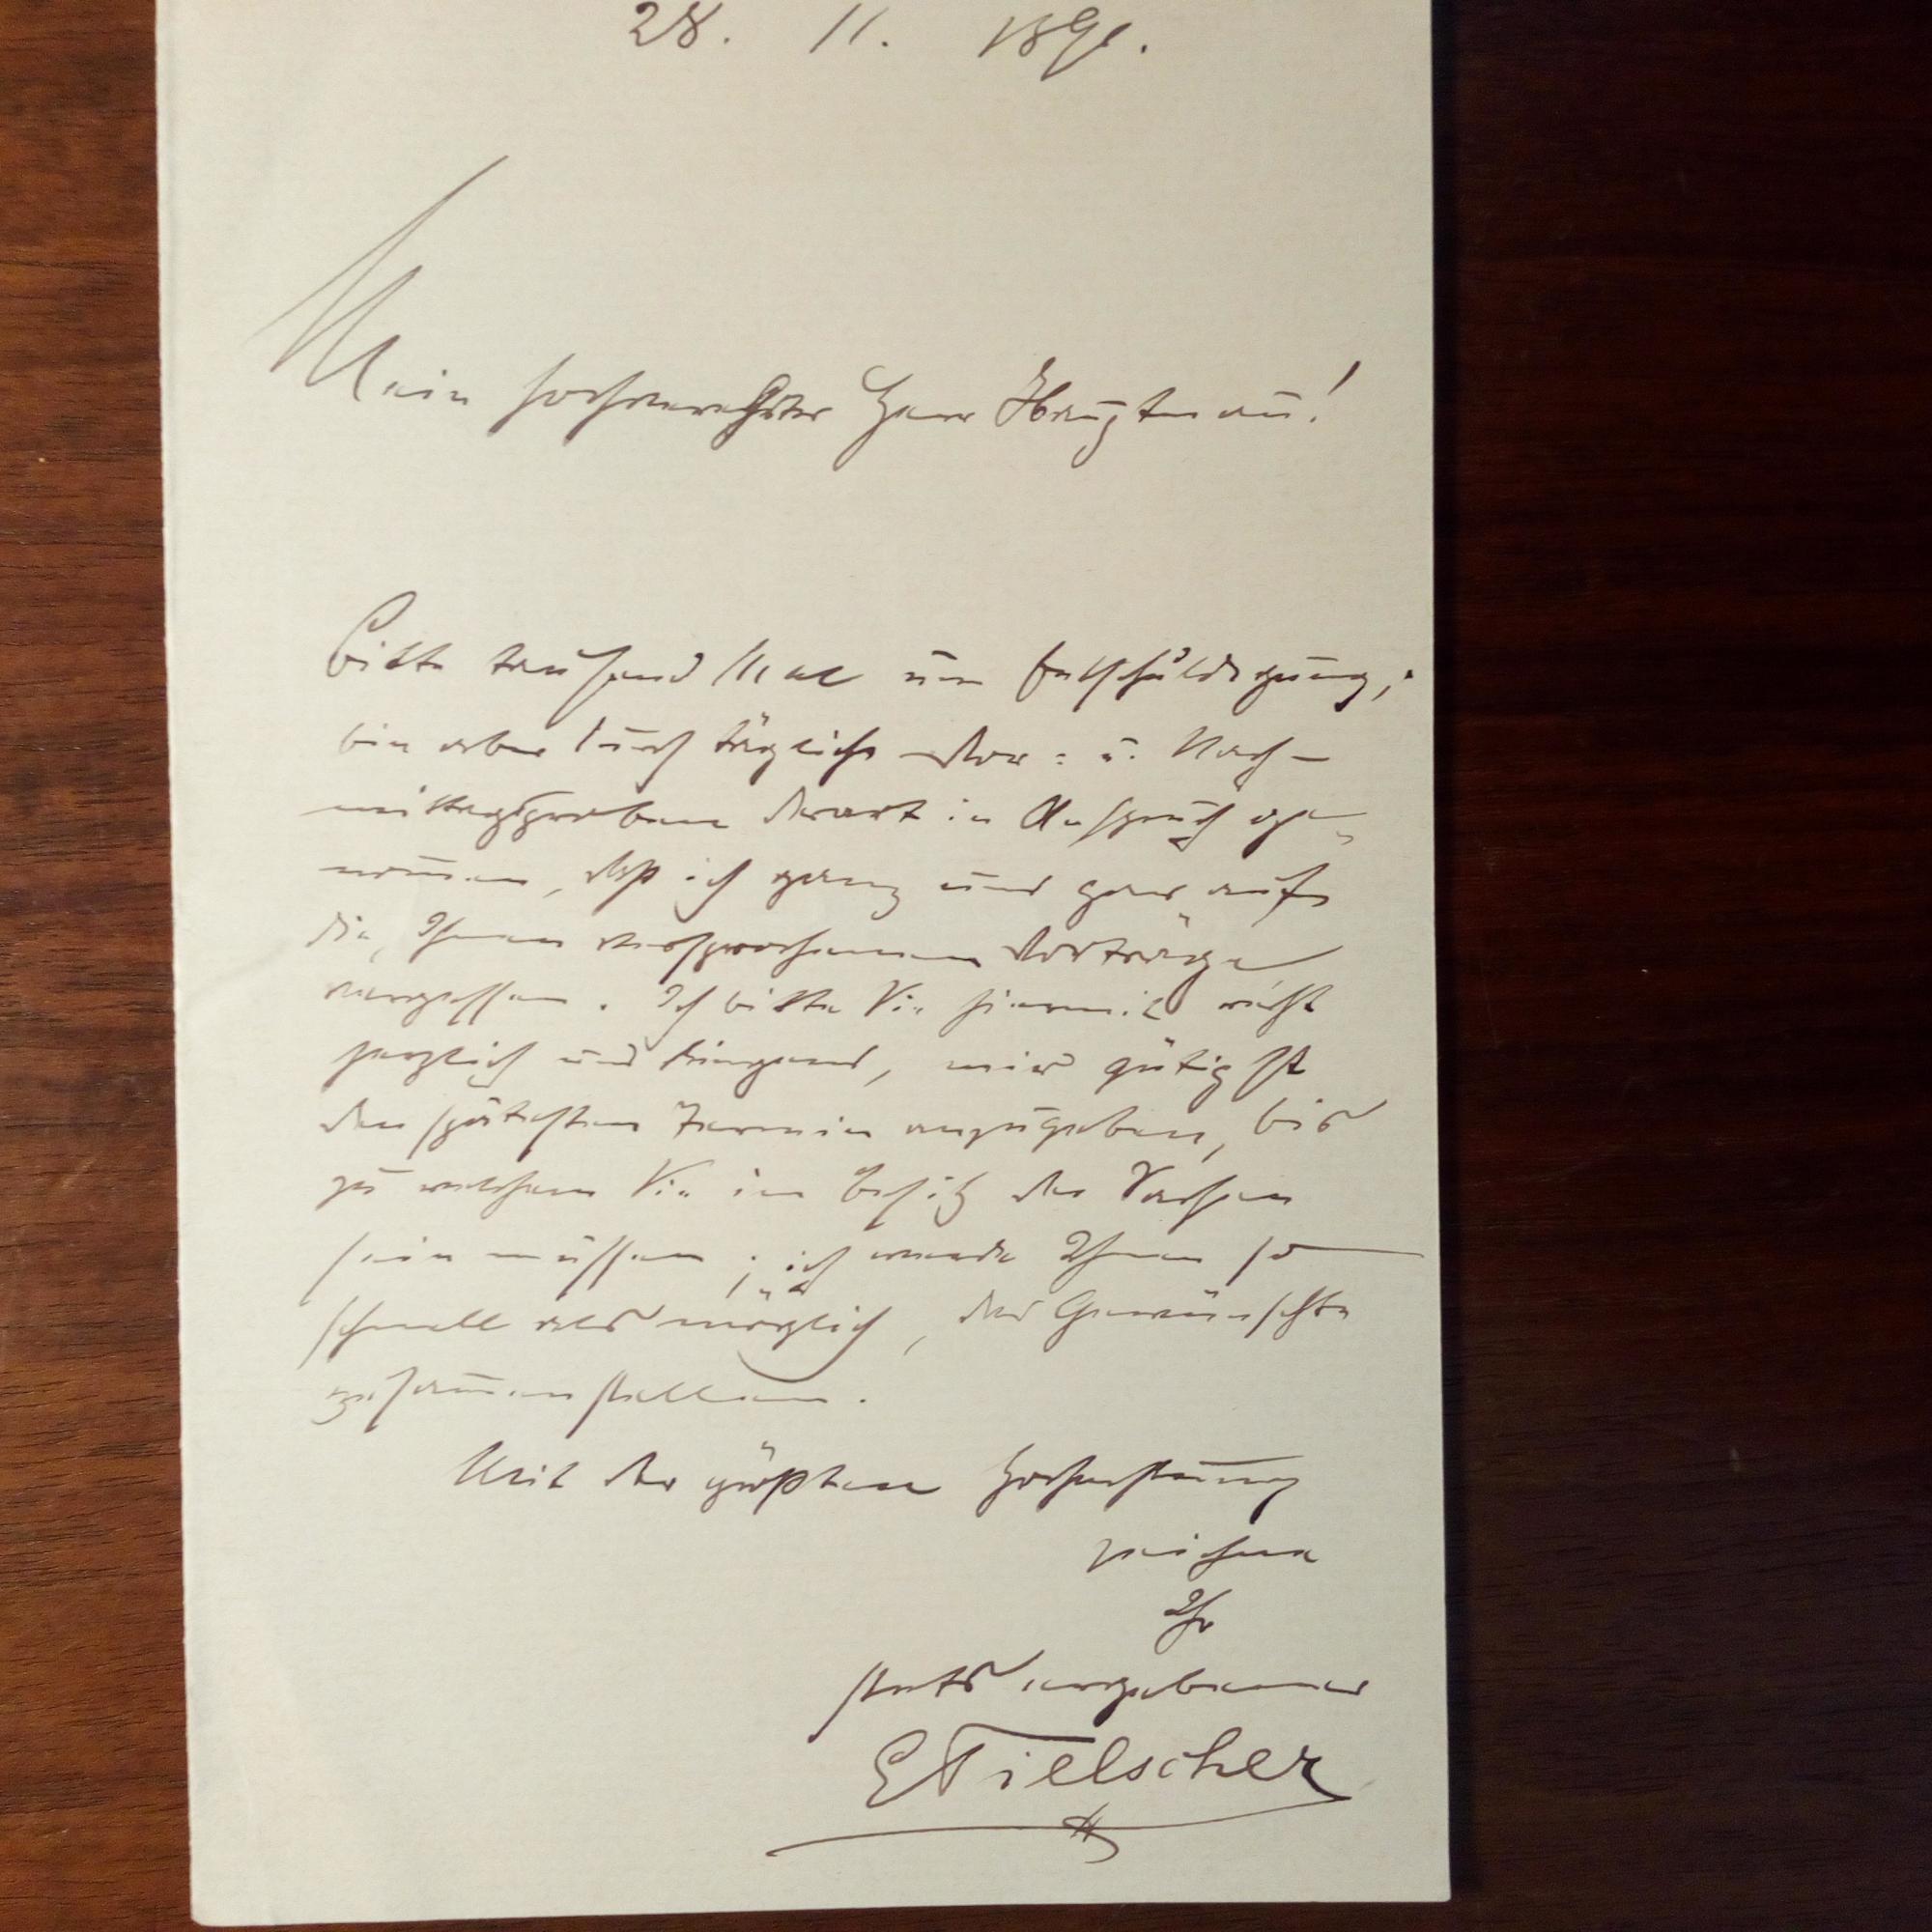 28. 11. 1891.
Mein hochverehrter Herr Hauptmann!
Bitte tausend Mal um Entschuldigung;
bin aber durch tägliche Vor= u. Nach-
mittagsproben derart in Anspruch ge-
nommen, daß ich ganz und gar auf
die, Ihnen versprochenen Vorträge
vergessen. Ich bitte Sie hiermit recht
herzlich und dringend, mir gütigst
den spätesten Termin anzugeben, bis
zu welchem Sie im Besitz der Sachen
sein müssen; ich werde Ihnen so
schnell als möglich, das Gewünschte
zusammenstellen.
Mit der größten Hochachtung
zeichne
Ihr
stets ergebener
E Tielscher